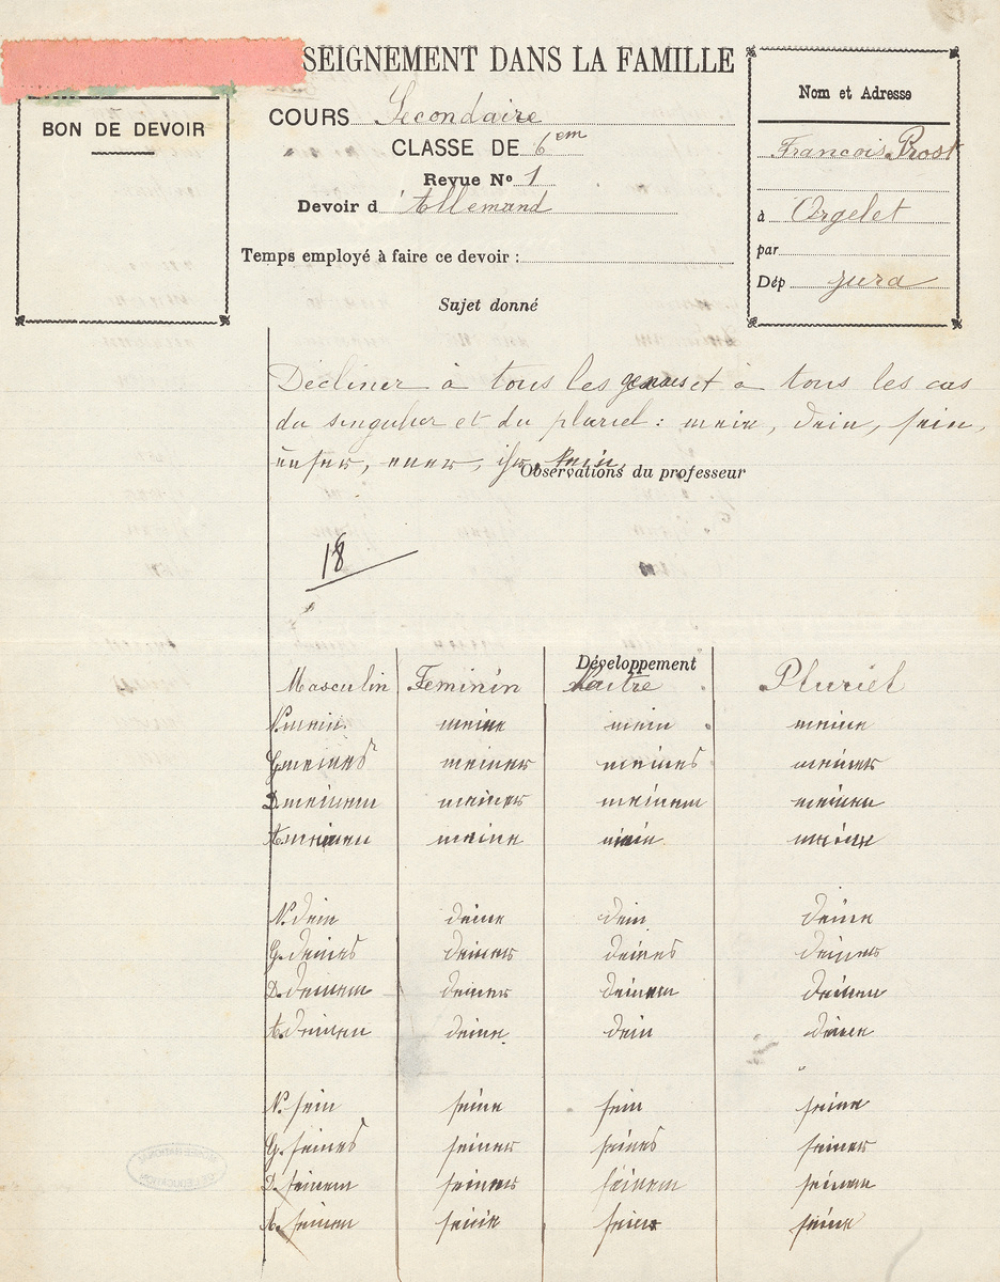 SEIGNEMENT DANS LA FAMILLE
BON DE DEVOIR
COURS Secondaire
CLASSE DE 6em
Revue No 1
Devoir d'Allemand
Temps employé à faire ce devoir :
Nom et Adresse
Francois Prost
à Orgelet
par
Dép Jura
Sujet donné
Décliner à tous les genres et à tous les cas
du singulier et du pluriel : mein, dein, sein,
unser, euer, ihr, kein.
Observations du professeur
18
Développement
Masculin Feminin Neutre Pluriel
N. mein meine mein meine
G. meines meiner meines meiner
D. meinem meiner meinem meinen
A. meinen meine mein meine
N. dein deine dein deine
G. deines deiner deines deiner
D. deinem deiner deinem deinen
A. deinen deine dein deine
N. sein seine sein seine
G. seines seiner seines seiner
D. seinem seiner seinem seinen
A. seinen seine sein seine